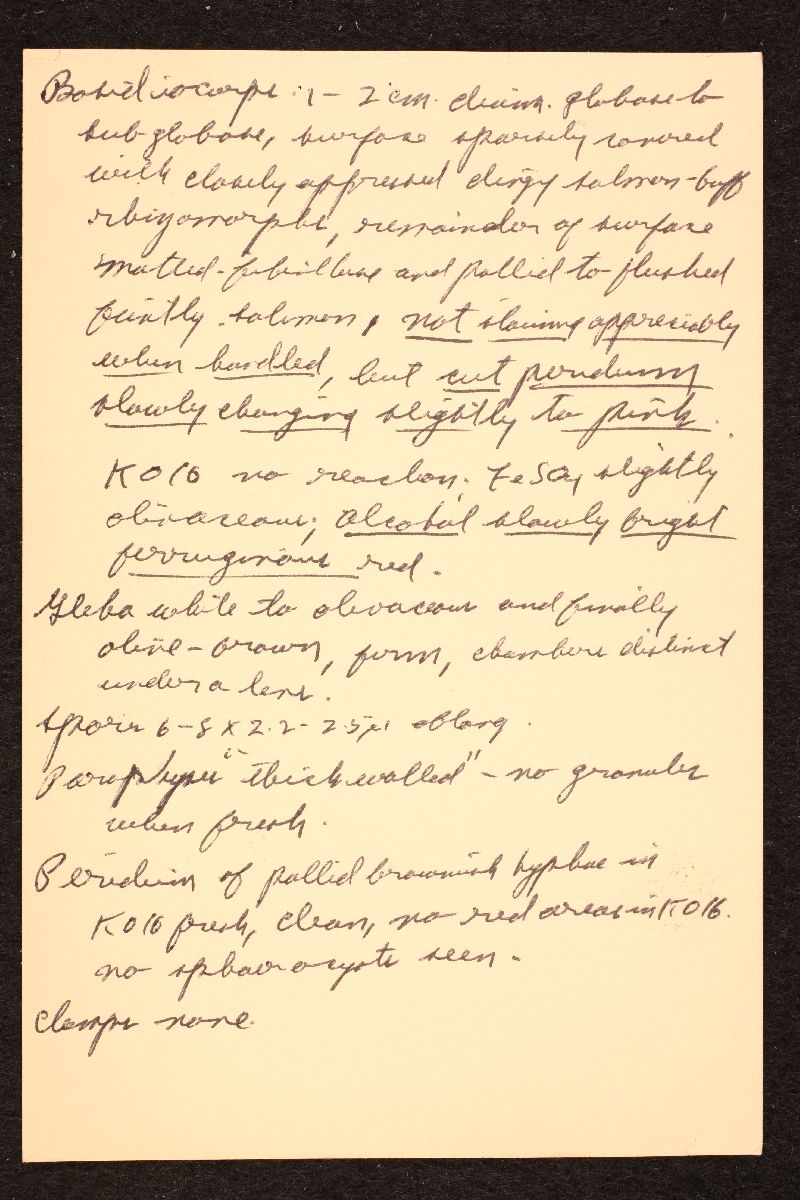 Basidiocarps 1 - 2 cm. diam. globose to
sub-globose, surface sparsely covered
with closely appressed dingy salmon-buff
rhizomorphs, remainder of surface
matted-fibrillose and pallid to flushed
faintly salmon, not staining appreciably
when handled, but cut peridium
slowly changing slightly to pink.
KOH no reaction; FeSO4 slightly
olivaceous; alcohol slowly bright
ferruginous red.
Gleba white to olivaceous and finally
olive-brown, firm, chambers distinct
under a lens.
Spores 6-8 x 2.2-2.5µ oblong.
"thick walled" - no granules
when fresh.
Peridium of pallid brownish hyphae in
KOH fresh, clean, no red areas in KOH.
no sphaerocysts seen.
Clamps none.